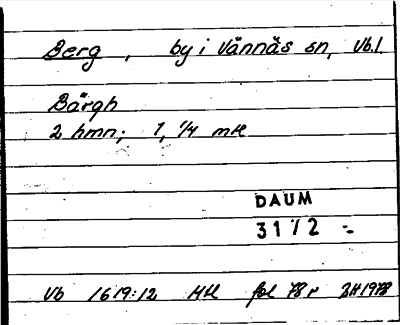 Berg, by i Vännäs sn, Vb.l.
Bärgh
2 hmn; 1, 1/4 mtl
DAUM
3112
Vb 1619:12 Mtl fol 78 r BH 1978